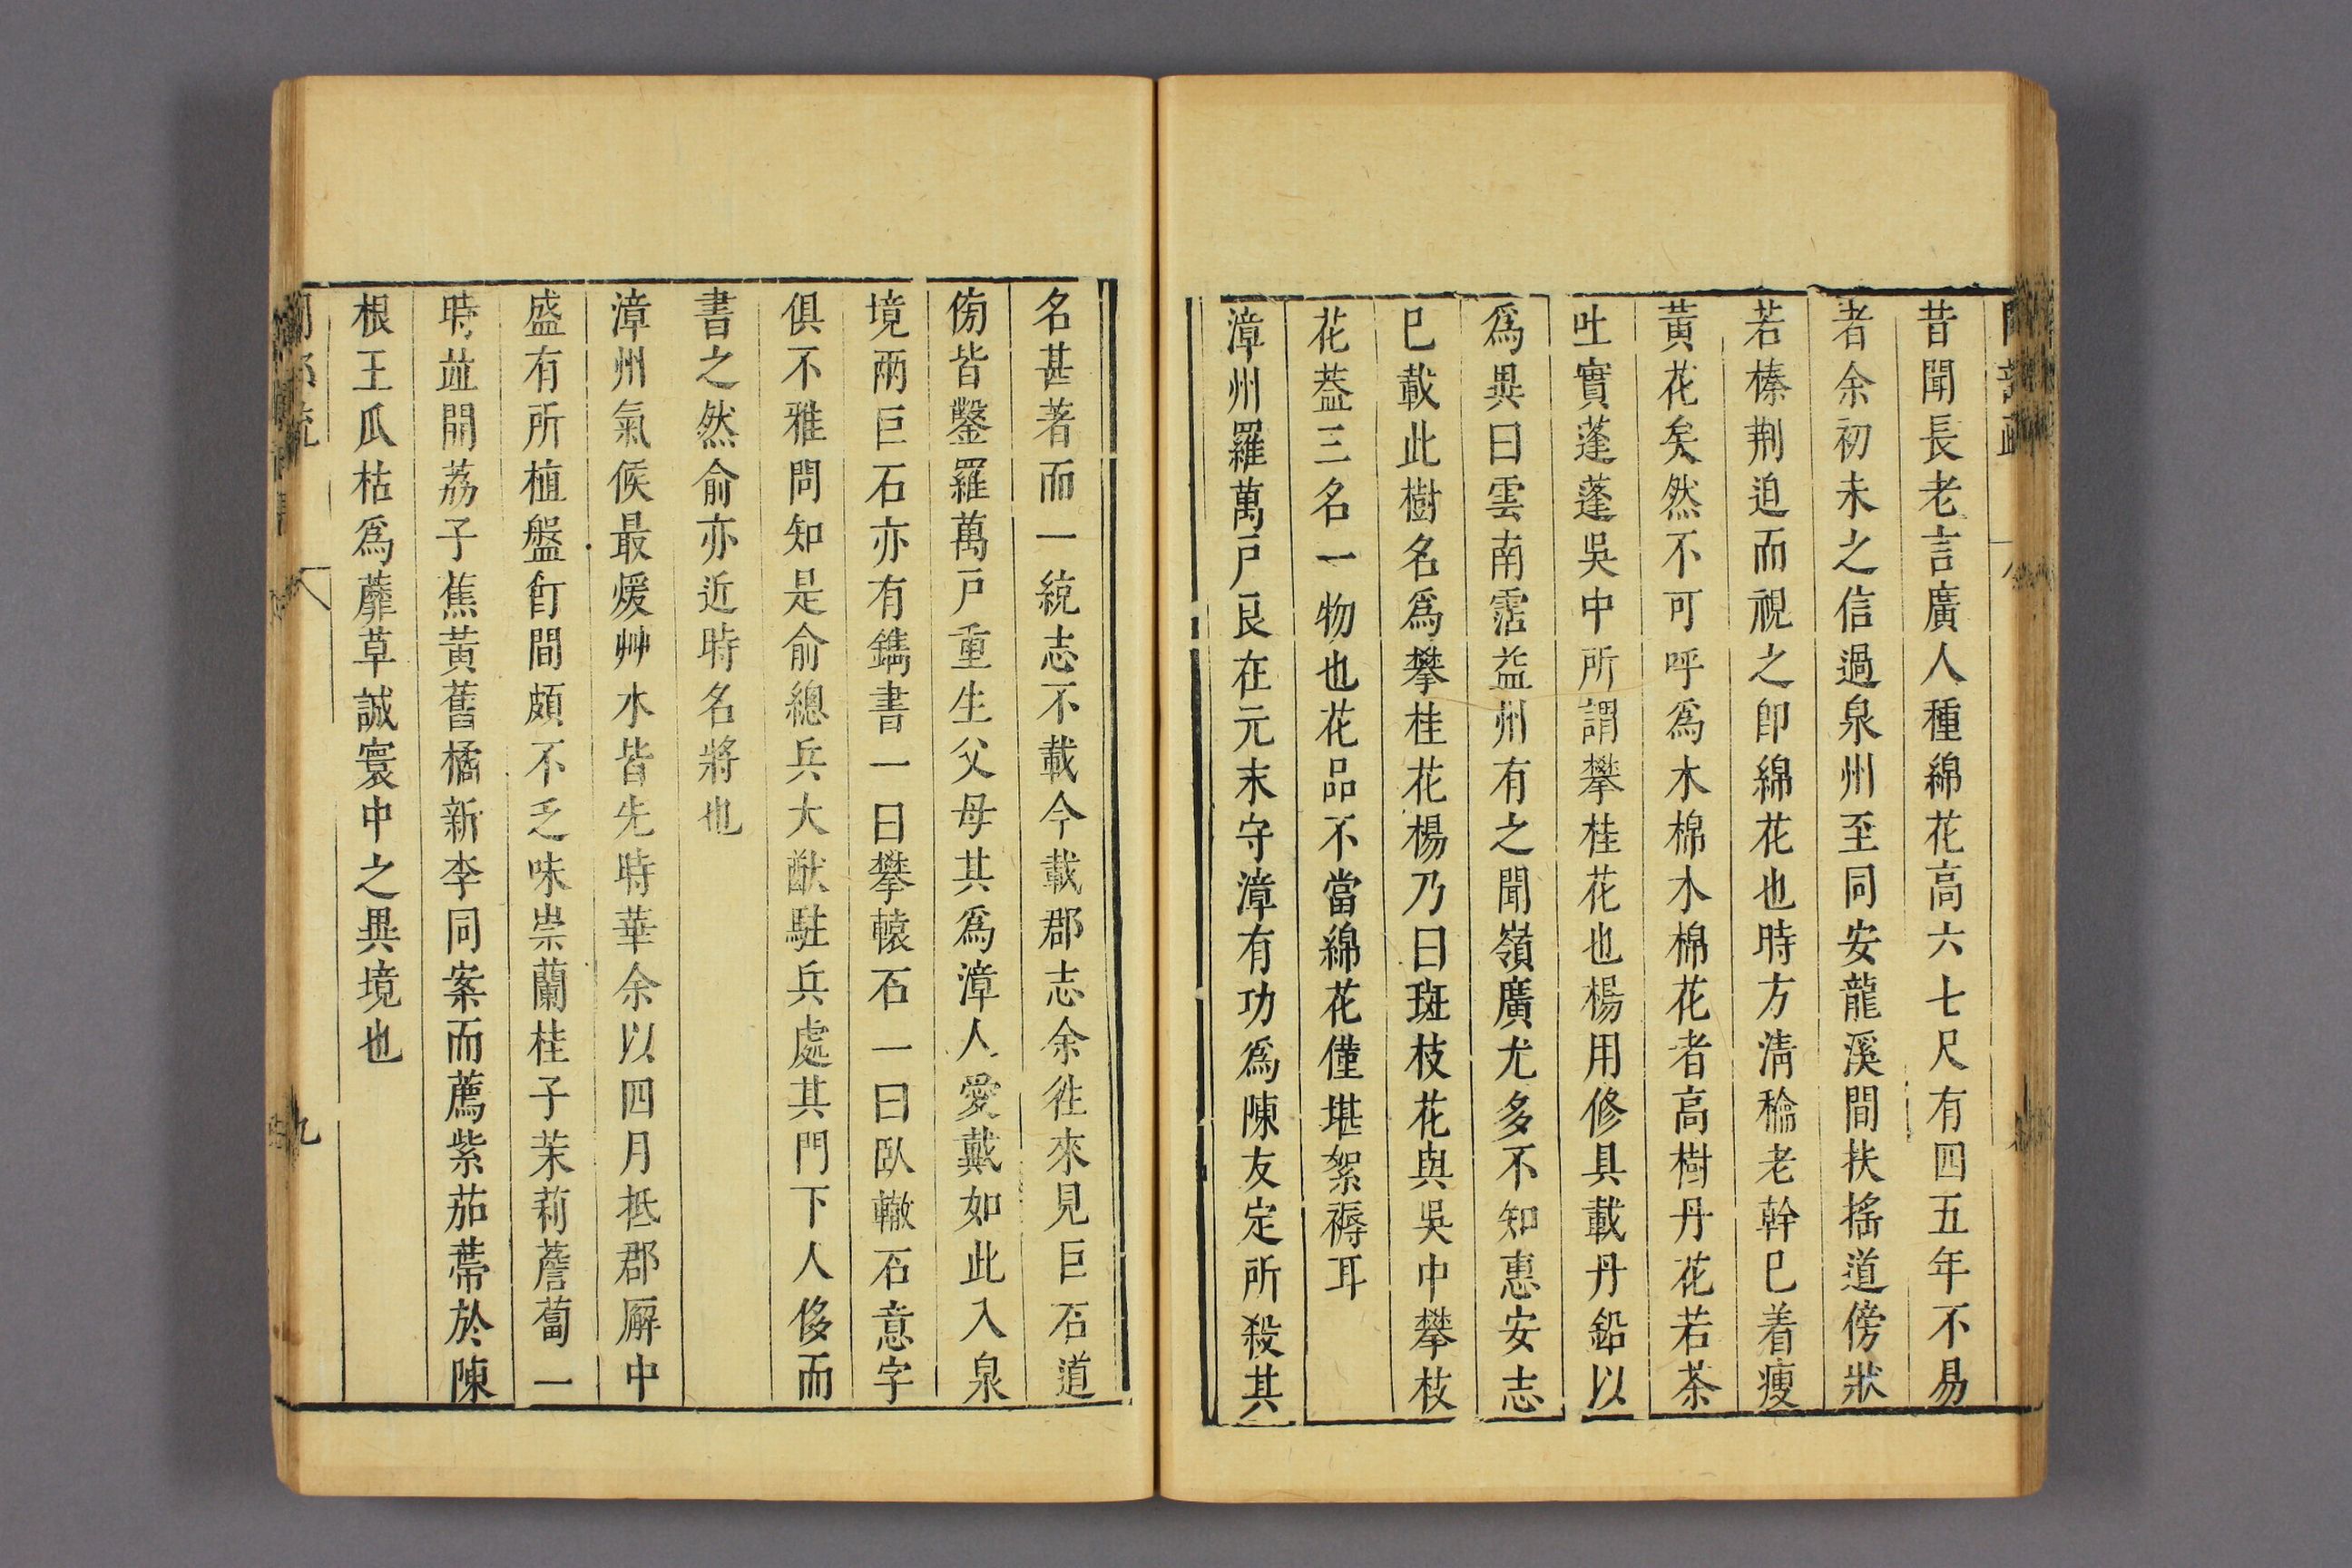 昔聞長老言廣人種綿花高六七尺有四五年不易
者余初未之信過泉州至同安龍溪間扶搖道傍狀
若榛荆迫而視之卽綿花也時方清穐老幹已着瘦
黃花矣然不可呼爲木棉木棉花者高樹丹花若茶
吐實蓬蓬吳中所謂攀桂花也楊用修具載丹鉛以
爲異曰雲南霑益州有之聞嶺廣尤多不知惠安志
已載此樹名爲攀桂花楊乃曰斑枝花與吳中攀枝
花葢三名一物也花品不當綿花僅堪絮褥耳
漳州羅萬戶良在元末守漳有功爲陳友定所殺其
名甚著而一統志不載今載郡志余徃來見巨石道
傍皆鑿羅萬戶重生父母其爲漳人愛戴如此入泉
境兩巨石亦有鐫書一曰攀轅石一曰臥轍石意字
俱不雅問知是俞總兵大猷駐兵處其門下人侈而
書之然俞亦近時名將也
漳州氣候最煖艸木皆先時華余以四月抵郡廨中
盛有所植盤飣間頗不乏味崇蘭桂子茉莉薝蔔一
時並開荔子蕉黃舊橘新李同案而薦紫茄蔕於陳
根王瓜枯爲蘼草誠寰中之異境也
九